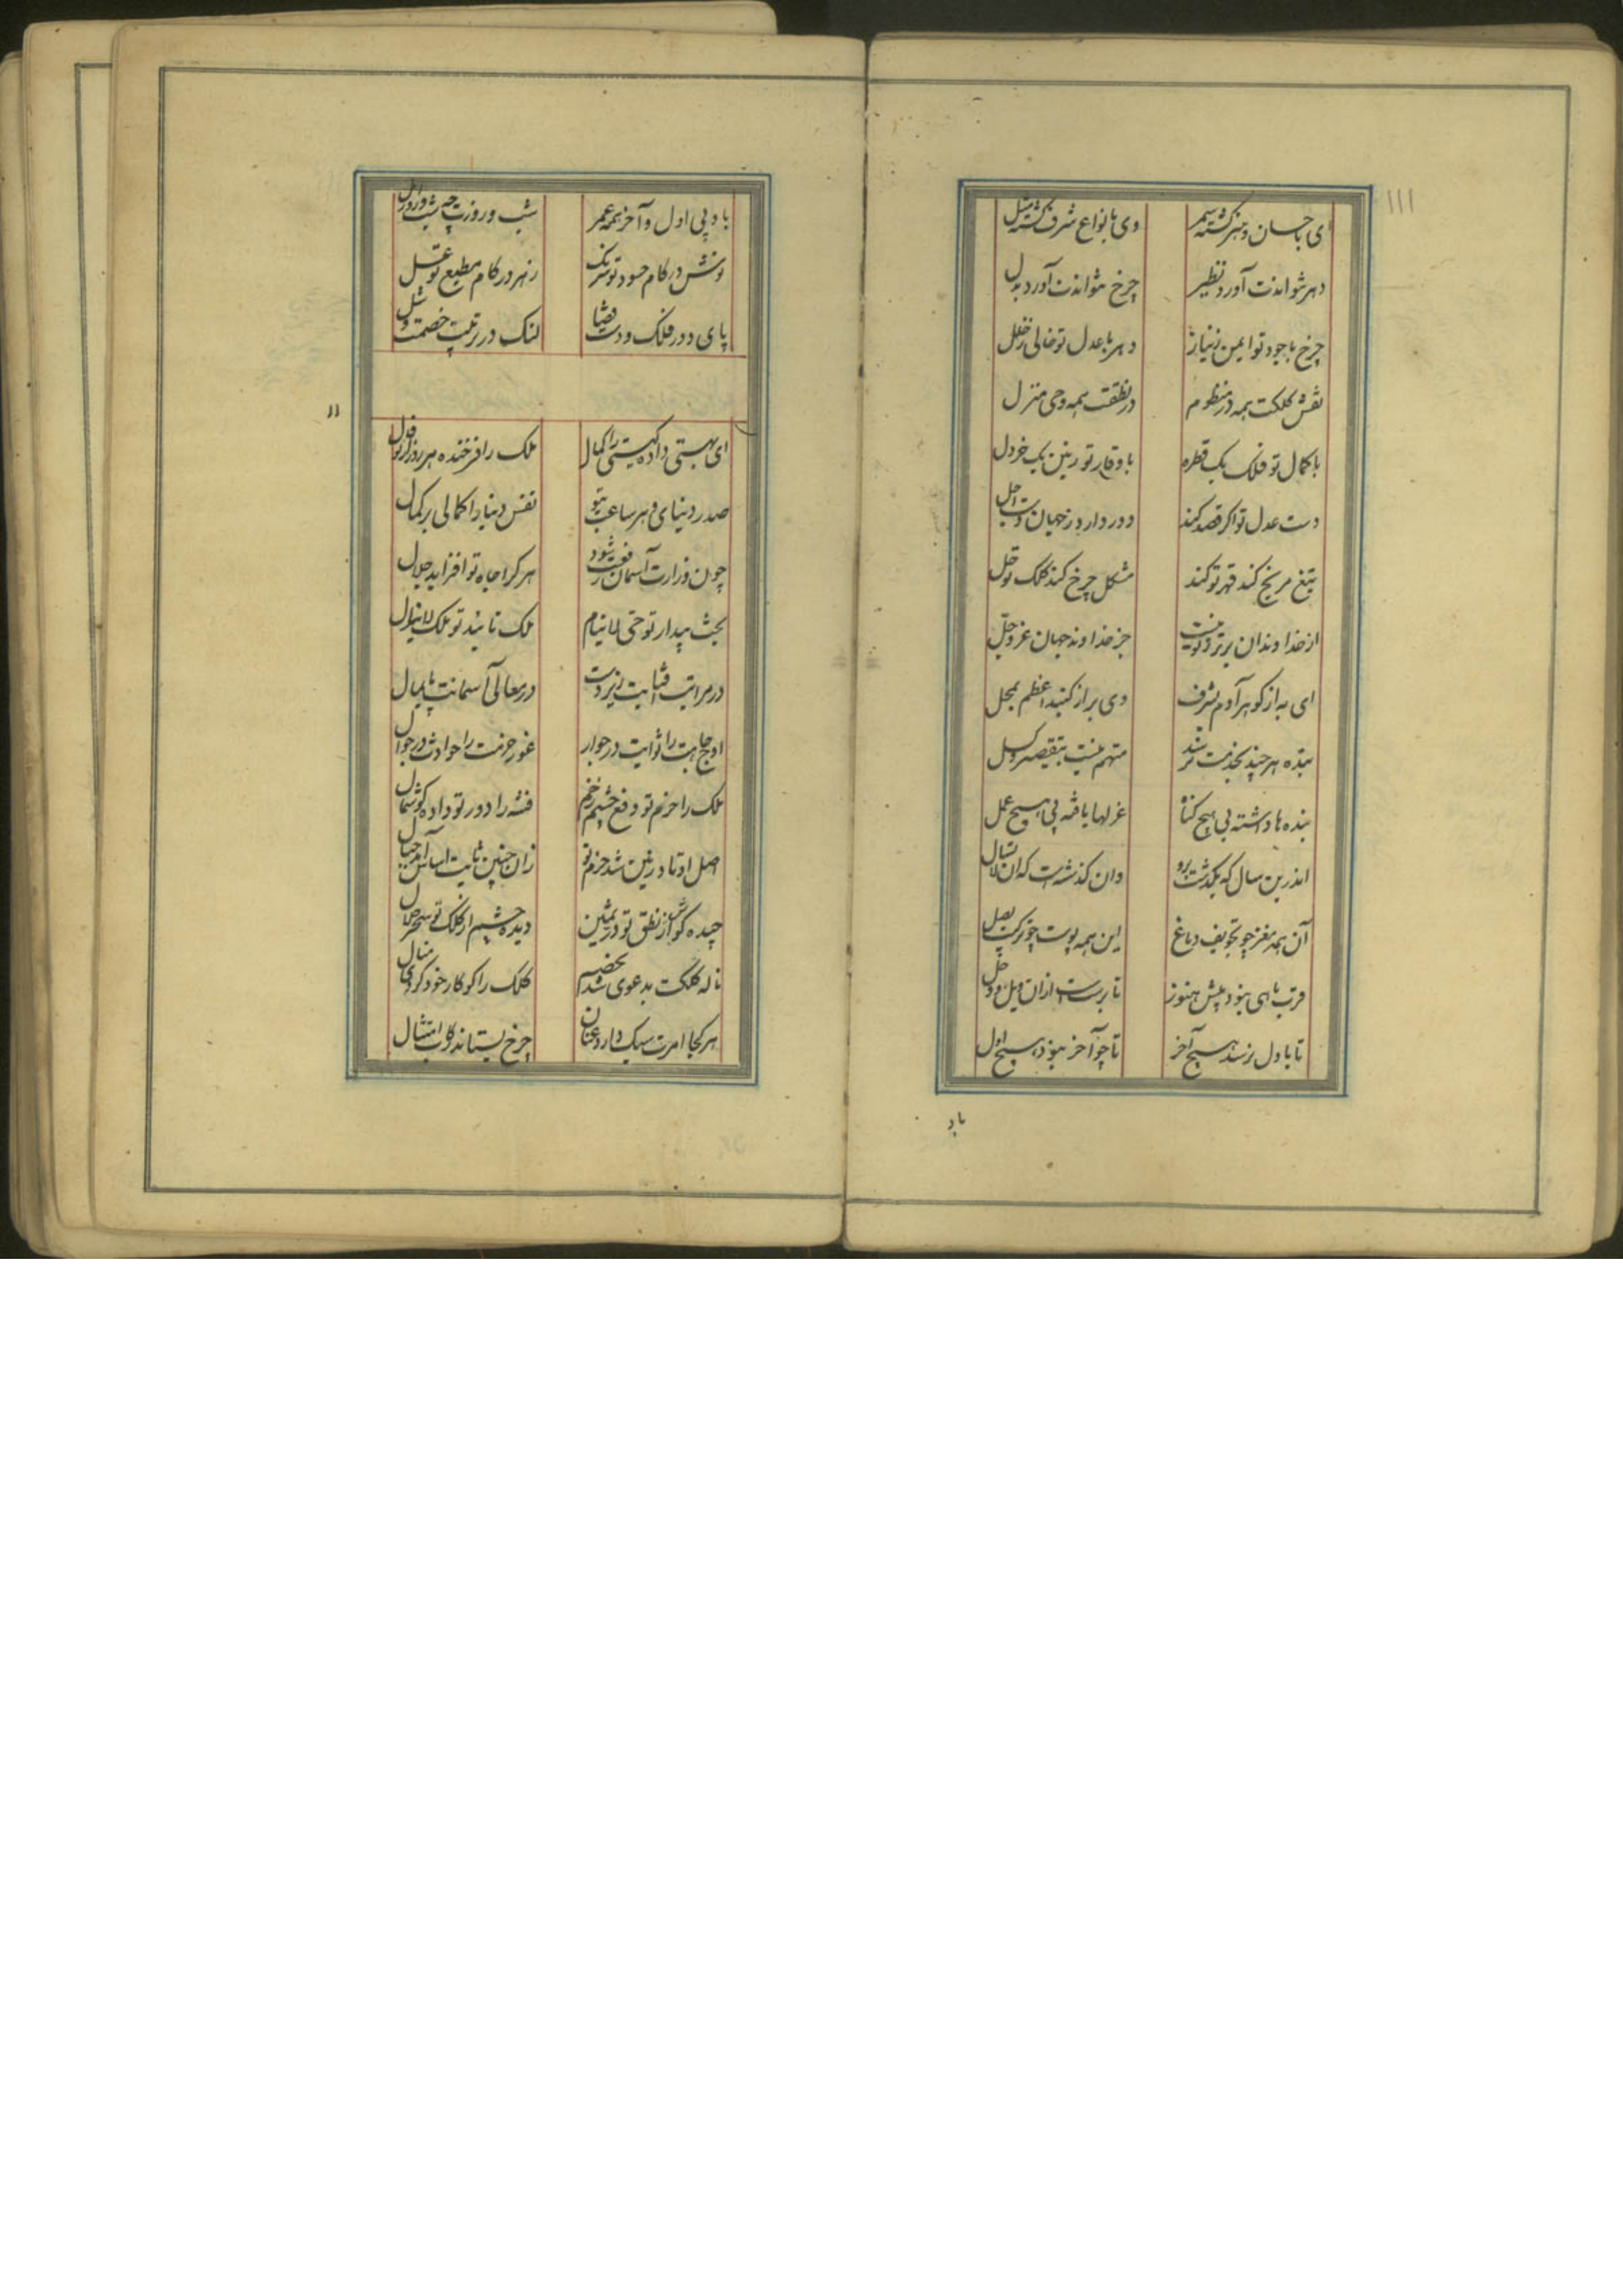 ۱۱۱
ای باحسان و هنر گشته سمر وی بانواع شرف گشته مثل
دهر نتواندت آورد نظیر چرخ نتواندت آورد بدل
چرخ با جود تو ایمن ز نیاز دهر با عدل تو خالی ز خلل
نقش کلکت همه در منظوم در نطقت همه وحی منزل
با کمال تو فلک یک قطره با وقار تو زمین یک خردل
دست عدل تو اگر قصد کند دور دارد ز جهان دست اجل
تیغ مریخ کند قهر تو کند مشکل چرخ کند کلک تو حل
از خداوندان برتر ز تو نیست جز خداوند جهان عز و جل
ای به از گوهر آدم بشرف وی بر از گنبد اعظم بمحل
بنده هر چند بخدمت نرسد متهم نیست بتقصیر و کسل
بنده‌ها داشته بی هیچ گناه عزلها یافته بی هیچ عمل
اندرین سال که بگذشت برو وان گذشتست که لاتسال
آن همه مغز چو تجویف دماغ این همه پوست چو ترکیب بصل
قرب ماهی بنود پیش هنوز تا برست از آن ویل و وحل
تا باول نرسد هیچ آخر تا چو آخر نبود هیچ اول
باد
باد بی اول و آخر همه عمر شب و روزت چه شب و روز ازل
نوش در کام حسود تو شرنگ زهر در کام مطیع تو عسل
پای دور فلک و دست قضا لنگ در تربیت خصمت و شل
اا
ای بهستی داده گیتی را کمال ملک را فرخنده هر روز از تو فال
صدر دنیای و هر ساعت بتو نفس دنیا را کمالی بر کمال
چون وزارت آسمان رفعت شود هر کرا جاه تو افزاید جلال
بخت بیدار تو حی لاینام ملک تایید تو ملک لایزال
در مراتب آفتابت زیردست در معالی آسمانت پایمال
اوج جاهت را ثوابت در جوار غور حزمت را حوادث در جوال
ملک را حزم تو دفع چشم زخم فتنه را دور تو داده گوشمال
اصل اوتاد زمین شد حزم تو زان چنین ثابت اساس آمد جبال
چیده گوش از نطق تو در ثمین دیده چشم از کلک تو سحر حلال
ناله کلکت بدعوی شد بخصم کلک را گو کار خود کردی منال
هر کجا امرت سبک دارد عنان چرخ بستاند رکاب امتثال